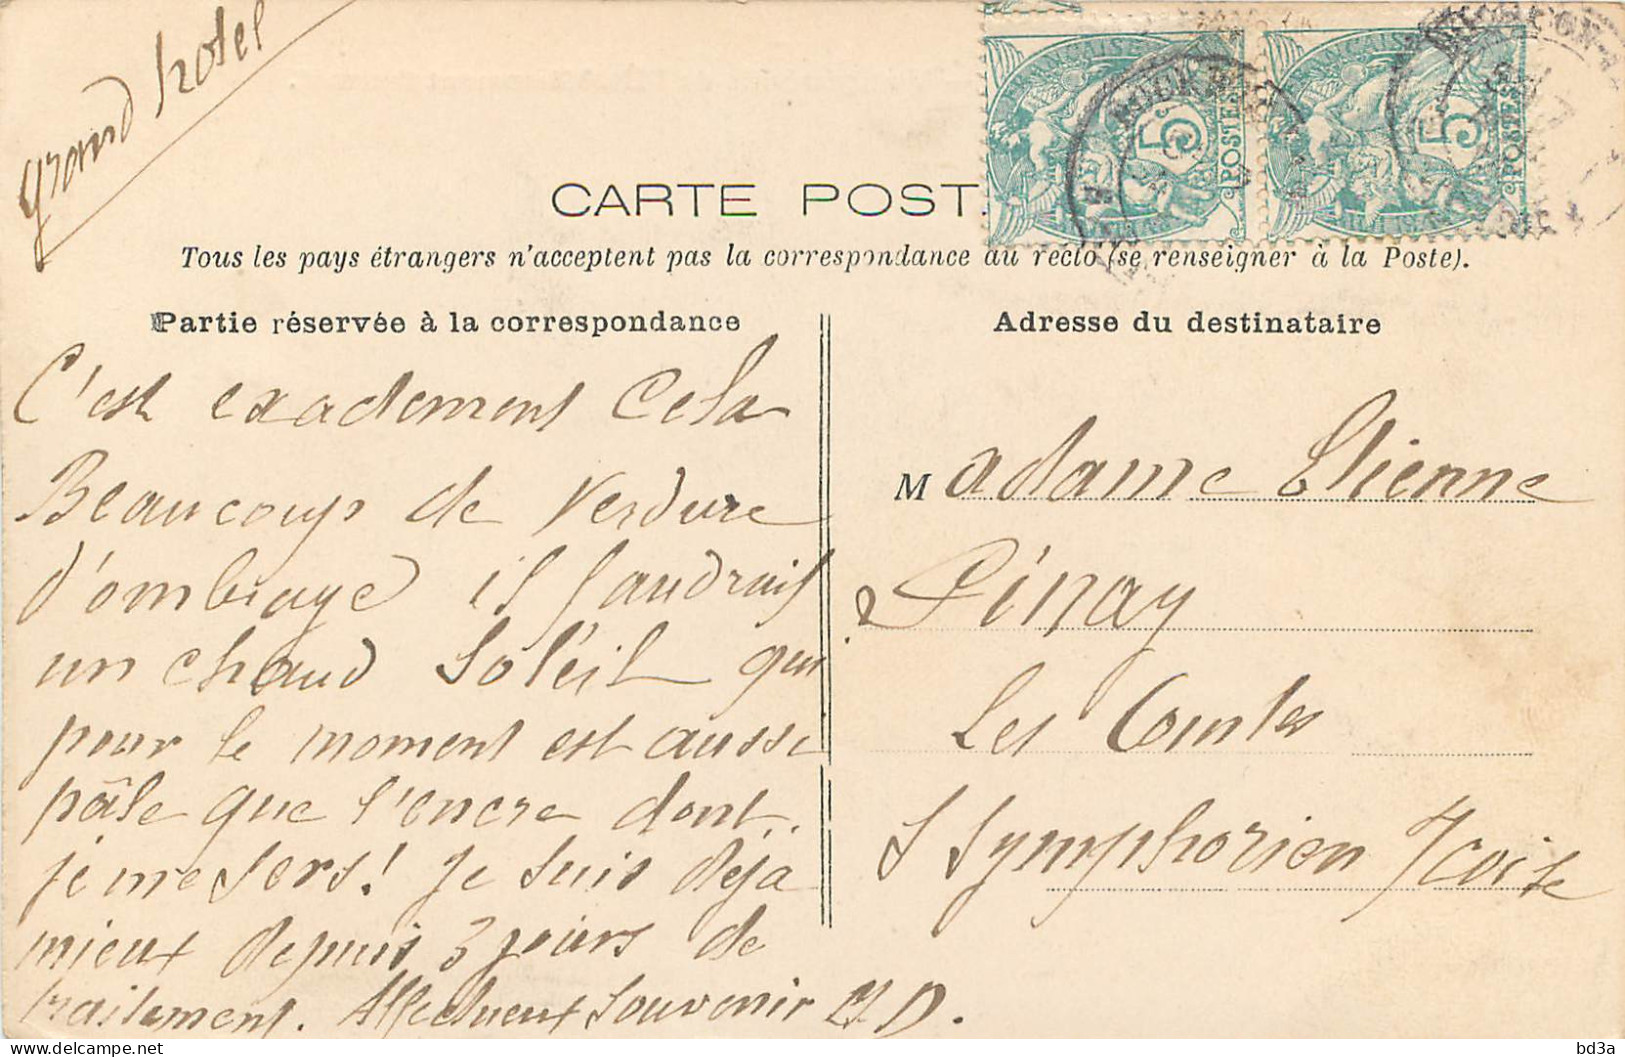 grand hotel
CARTE POST
Tous les pays étrangers n'acceptent pas la correspondance au recto (se renseigner à la Poste).
Partie réservée à la correspondance
C'est exactement cela
Beaucoup de verdure
d'ombrage il faudrait
un chaud soleil qui
pour le moment est aussi
pâle que l'encre dont
je me sers! Je suis déjà
mieux depuis 3 jours de
traitement. Affectueux souvenir
D.
Adresse du destinataire
Madame Etienne
Pinay
Les
S Symphorien s/ coise
5 POSTES
5 POSTES
bd3a